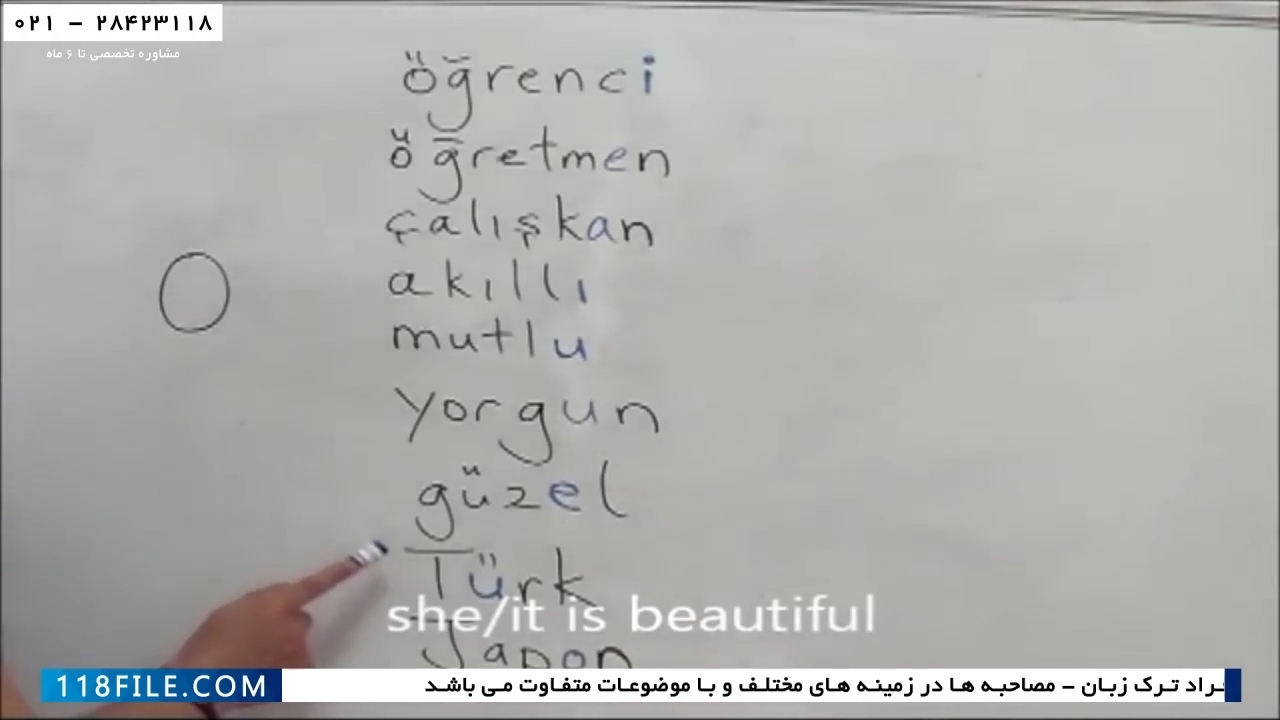 ۰۲۱ - ۲۸۴۲۳۱۱۸
مشاوره تخصصی تا ۶ ماه
öğrenci
öğretmen
çalışkan
akıllı
O
mutlu
yorgun
güzel
Türk
she/it is beautiful
Japon
118FILE.COM
ـراد تـرک زبان - مصاحبـه هـا در زمینـه هـای مختلـف و بـا موضوعـات متفـاوت مـی باشـد